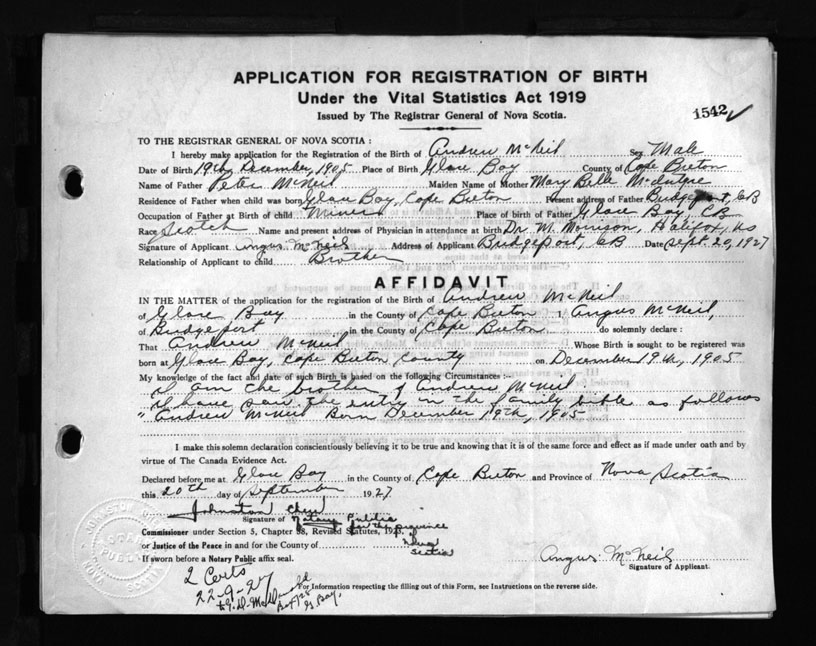 APPLICATION FOR REGISTRATION OF BIRTH
Under the Vital Statistics Act 1919
Issued by The Registrar General of Nova Scotia.
1542
TO THE REGISTRAR GENERAL OF NOVA SCOTIA :
I hereby make application for the Registration of the Birth of Andrew McNeil Sex Male
Date of Birth 19th December, 1905 Place of Birth Glace Bay County of Cape Breton
Name of Father Peter McNeil Maiden Name of Mother Mary Belle McIntyre
Residence of Father when child was born Glace Bay, Cape Breton Present address of Father Bridgeport, CB
Occupation of Father at Birth of child Miner Place of birth of Father Glace Bay, CB
Race Scotch Name and present address of Physician in attendance at birth Dr. M. Morrison, Halifax, NS
Signature of Applicant Angus McNeil Address of Applicant Bridgeport, CB Date Sept. 20, 1927
Relationship of Applicant to child Brother
AFFIDAVIT
IN THE MATTER of the application for the registration of the Birth of Andrew McNeil
of Glace Bay in the County of Cape Breton I, Angus McNeil,
of Bridgeport in the County of Cape Breton do solemnly declare :
That Andrew McNeil Whose Birth is sought to be registered was
born at Glace Bay, Cape Breton County on December 19th, 1905
My knowledge of the fact and date of such Birth is based on the following Circumstances :-
I am the brother of Andrew McNeil
I have saw the entry in the family bible as follows
"Andrew McNeil Born December 19th, 1905
I make this solemn declaration conscientiously believing it to be true and knowing that it is of the same force and effect as if made under oath and by
virtue of The Canada Evidence Act.
Declared before me at Glace Bay in the County of Cape Breton and Province of Nova Scotia
this 20th day of September 1927
Johnston
Signature of Notary Public
for the province
Commissioner under Section 5, Chapter 38, Revised Statutes, 1923.
of
or Justice of the Peace in and for the County of Nova
Scotia
If sworn before a Notary Public affix seal.
Angus McNeil
Signature of Applicant.
2 Certs
22-9-27
For Information respecting the filling out of this Form, see Instructions on the reverse side.
McDonald
G. Bay.